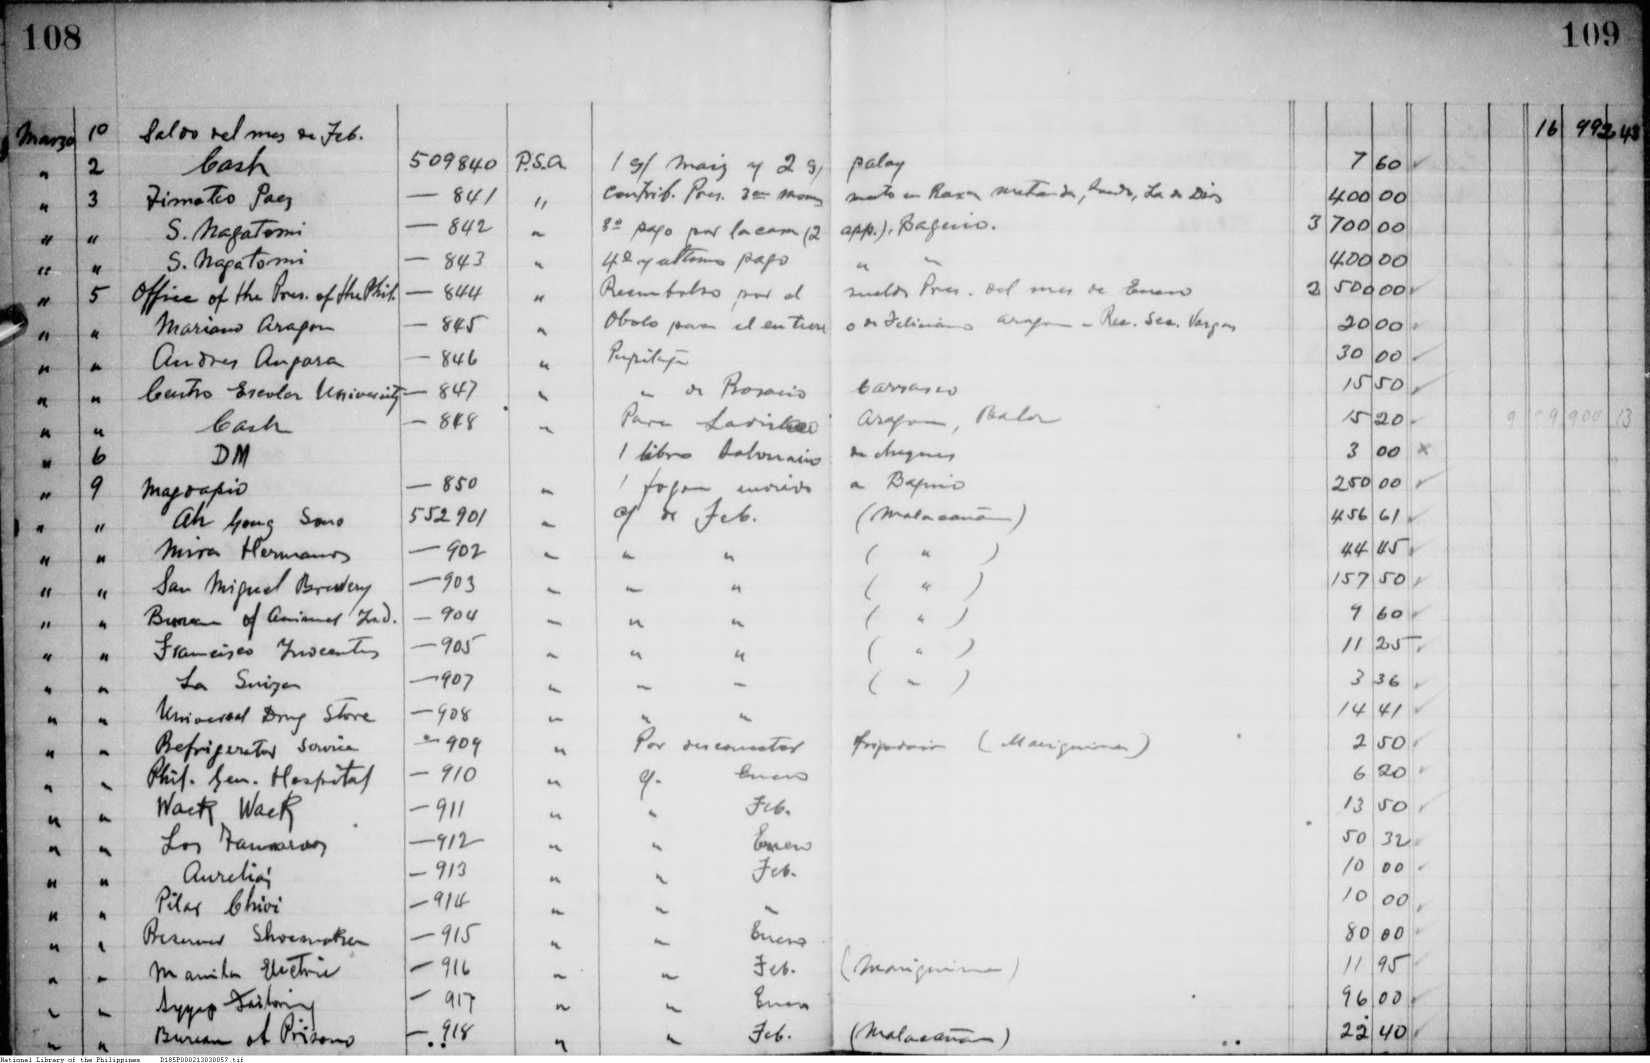 108 109
Marzo 10 Saldo del mes de Feb. 16 992 43
" 2 Cash 509840 P.S.A. 1 g/ maiz y 2 g/ palay 7 60 ✓
" 3 Timoteo Paez — 841 " Contrib. Pres. 400 00
" " S. Nagatomi — 842 " 3º pago por la casa (2 app.), Baguio. 3 700 00
" " S. Nagatomi — 843 " 4º y ultimo pago " " 400 00
" 5 Office of the Pres. of the Phil. — 844 " Reembolso por el sueldo Pres. del mes de Enero 2 500 00 ✓
" " Mariano Aragon — 845 " Obolo para el entierro de Feliciano Aragon - Rec. Sec. Vargas 20 00 ✓
" " Andres Angara — 846 " Pupilaje 30 00 ✓
" " Centro Escolar University — 847 " " de Rosario Carrasco 15 50 ✓
" " Cash — 848 " Para Ladislao Aragon, Baler 15 20 ✓
" 6 DM 1 libro talonario de cheques 3 00 x
" 9 Magdapio — 850 " 1 fogon enviado a Baguio 250 00 ✓
" " Ah Gong Sons 552901 " c/ de Feb. (Malacañan) 456 61 ✓
" " Mira Hermanos — 902 " " " ( " ) 44 45 ✓
" " San Miguel Brewery — 903 " " " ( " ) 157 50 ✓
" " Bureau of Animal Ind. — 904 " " " ( " ) 9 60 ✓
" " Francisco Inocentes — 905 " " " ( " ) 11 25 ✓
" " La Suiza — 907 " " " ( " ) 3 36 ✓
" " Universal Drug Store — 908 " " " 14 41 ✓
" " Refrigerator Service — 909 " Por desconectar frigidaire (Mariquina) 2 50 ✓
" " Phil. Gen. Hospital — 910 " c/. Enero 6 20 ✓
" " Wack Wack — 911 " " Feb. 13 50 ✓
" " Los Tamaraos — 912 " " Enero 50 32 ✓
" " Aurelia's — 913 " " Feb. 10 00 ✓
" " Pilar — 914 " " " 10 00 ✓
" " Shoemaker — 915 " " Enero 80 00 ✓
" " Manila Electric — 916 " " Feb. (Mariquina) 11 95 ✓
" " Ayyap Tailoring — 917 " " Enero 96 00 ✓
" " Bureau of Prisons — 918 " " Feb. (Malacañan) 22 40 ✓
National Library of the Philippines D185P000213030057.tif